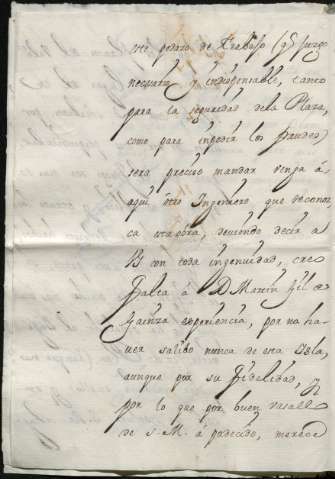 este pedazo de trabajo (q.e juzgo
necesario y indispensable, tanto
para la seguridad dela Plaza,
como para inpedir los fraudes)
sera preciso mandar venga á
aqui ótro Ingeniero, que reconos
ca esta obra, deviendo decir a
VS con toda ingenuidad, creo
falta á D. Martin Gil de
Gainza experiencia, por no ha
uer salido nunca de esta Isla,
aunque por su fidelidad, y
por lo que por buen vasallo
de S. M. á padecido, merece